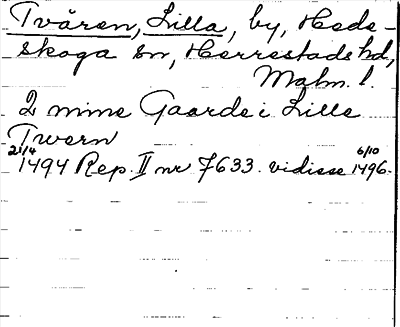 Tvären, Lilla, by, Hede-
skoga sn, Herrestads hd,
Malm. l.
2 mine Gaarde i Lille
Twern
21/4 1494 Rep. II nr 7633. vidisse 6/10 1496.